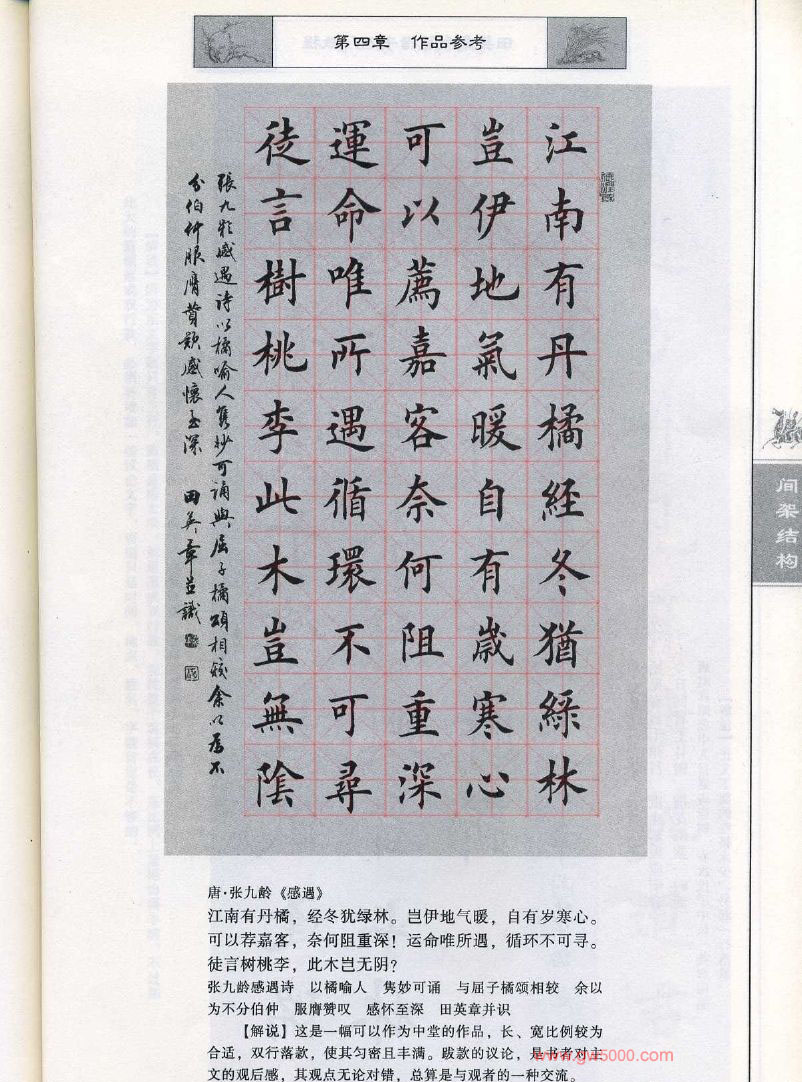 第四章　作品参考
江南有丹橘經冬猶綠林
豈伊地氣暖自有歲寒心
可以薦嘉客奈何阻重深
運命唯所遇循環不可尋
徒言樹桃李此木豈無陰
張九齡感遇诗以橘喻人隽妙可诵與屈子橘頌相较余以為不
分伯仲服膺赞歎感懷至深　田英章並識
间架结构
唐·张九龄《感遇》
江南有丹橘，经冬犹绿林。岂伊地气暖，自有岁寒心。
可以荐嘉客，奈何阻重深！运命唯所遇，循环不可寻。
徒言树桃李，此木岂无阴？
张九龄感遇诗　以橘喻人　隽妙可诵　与屈子橘颂相较　余以
为不分伯仲　服膺赞叹　感怀至深　田英章并识
【解说】这是一幅可以作为中堂的作品，长、宽比例较为
合适，双行落款，使其匀密且丰满。跋款的议论，是书者对主
文的观后感，其观点无论对错，总算是与观者的一种交流。
www.gw5000.com